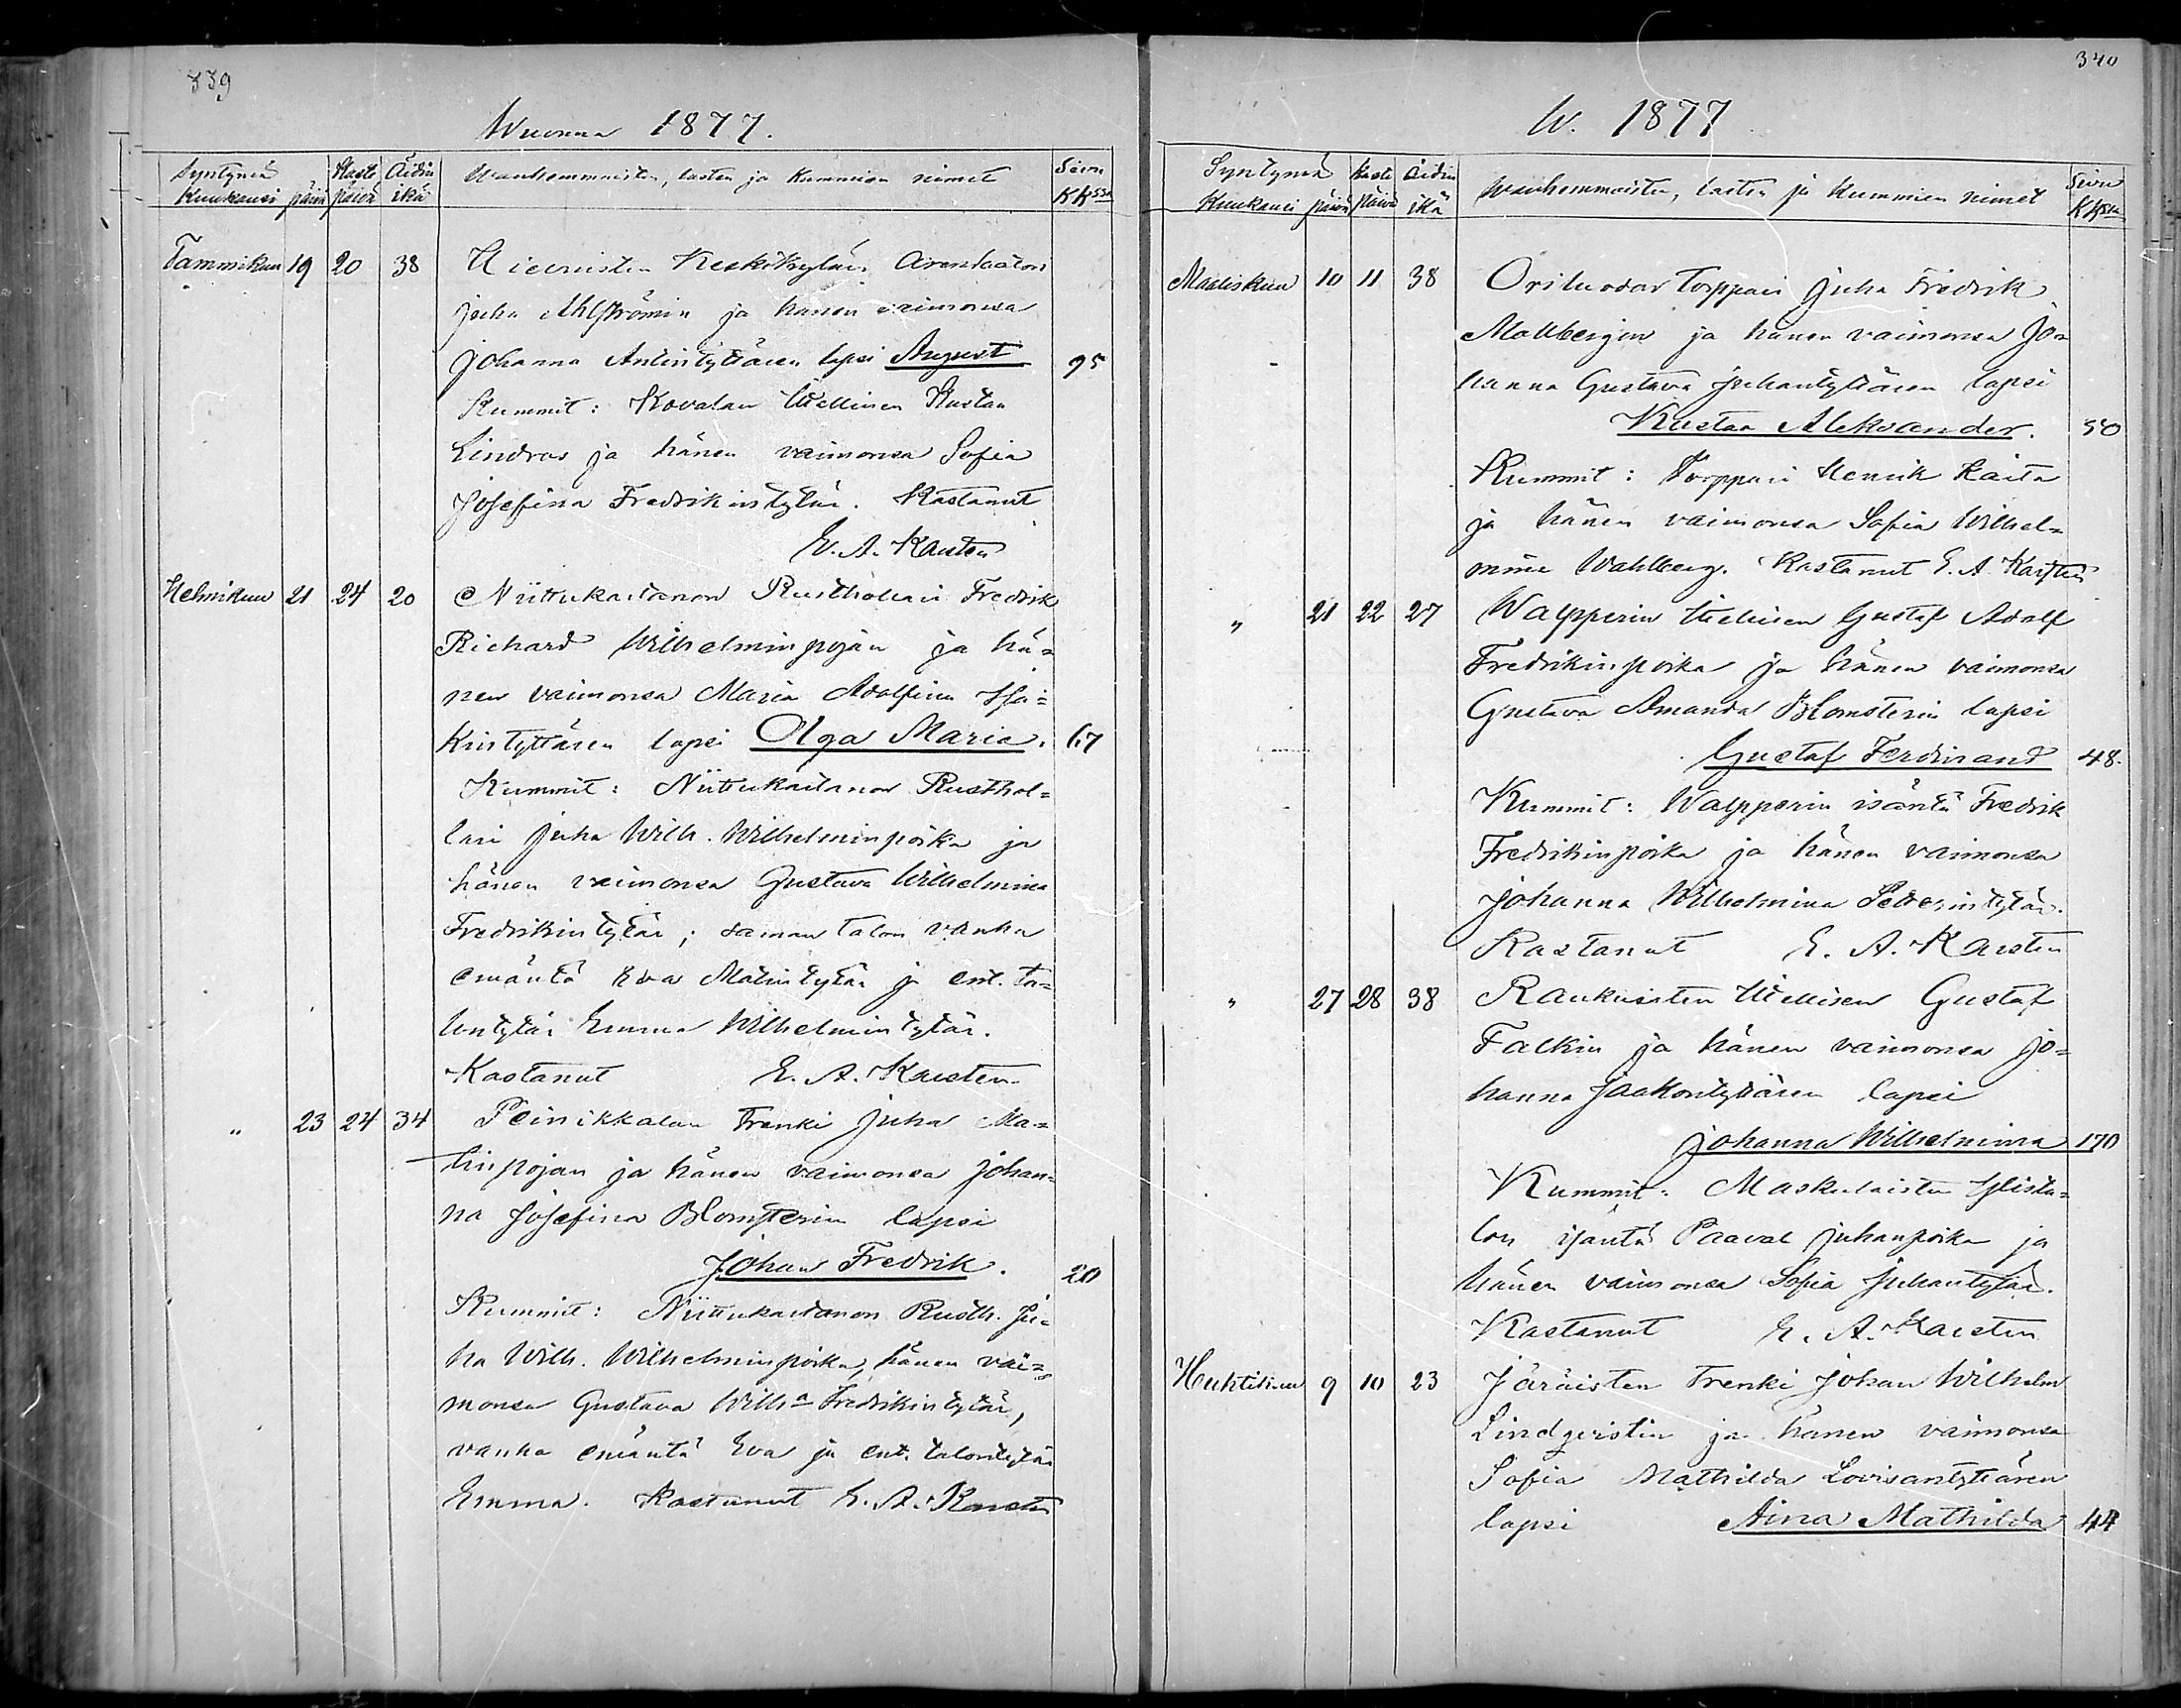 339
Wuonna 1877.
Syntymä Kaste Äidin Wanhemmaisten, lasten ja Kummien nimet Sivu
Kuukausi päivä päivä ikä KKssa
Tammikuu 19 20 38 Keskikylän Arentaatori
Juha Ahlströmin ja hänen vaimonsa
Johanna Antintyttären lapsi August 95
Kummit: Kovalan Itellinen Kustaa
Lindros ja hänen vaimonsa Sofia
Josefina Fredrikintytär. Kastanut
E. A. Karsten
Helmikuu 21 24 20 Niittukartanon Rusthollari Fredrik
Richard Wilhelminpojan ja hä=
nen vaimonsa Maria Adolfina Isa=
kintyttären lapsi Olga Maria. 67
Kummit: Niittukartanon Rusthol=
lari Juha Wilh. Wilhelminpoika ja
hänen vaimonsa Gustava Wilhelmina
Fredrikintytär; saman talon vanha
emäntä Eva Matintytär ja ent. ta=
lontytär Emma Wilhelmintytär.
Kastanut E. A. Karsten
" 23 24 34 Peinikkalan Trenki Juha Ma=
tinpojan ja hänen vaimonsa Johan=
na Josefina Blomsterin lapsi
Johan Fredrik. 20
Kummit: Niittukartanon Rusth. Ju=
ha Wilh. Wilhelminpoika, hänen vai=
monsa Gustava Wilha Fredrikintytär,
vanha emäntä Eva ja ent. talontytär
Emma. Kastanut E. A. Karsten
340
W. 1877
Syntymä Kaste Äidin Wanhemmaisten, lasten ja Kummien nimet Sivu
Kuukausi päivä päivä ikä KKssa
Maaliskuu 10 11 38 Oriluodon Torppari Juha Fredrik
Mallbergin ja hänen vaimonsa Jo=
hanna Gustava Juhantyttären lapsi
Kustaa Aleksander. 50
Kummit: Torppari Henrik Raita
ja hänen vaimonsa Sofia Wilhel=
mina Wahlberg. Kastanut E. A. Karsten
" 21 22 27 Walpperin Itellisen Gustaf Adolf
Fredrikinpoika ja hänen vaimonsa
Gustava Amanda Blomsterin lapsi
Gustaf Ferdinand 48.
Kummit: Walpperin isäntä Fredrik
Fredrikinpoika ja hänen vaimonsa
Johanna Wilhelmina Petterintytär.
Kastanut E. A. Karsten
" 27 28 38 Raukuisten Itellisen Gustaf
Falkin ja hänen vaimonsa Jo=
hanna Jaakontyttären lapsi
Johanna Wilhelmina 170
Kummit: Maskulaisten Ylista=
lon isäntä Paaval Juhanpoika ja
hänen vaimonsa Sofia Juhantytär.
Kastanut E. A. Karsten
Huhtikuu 9 10 23 Järäisten Trenki Johan Wilhelm
Lindqvistin ja hänen vaimonsa
Sofia Mathilda Lovisantyttären
lapsi Aina Mathilda 44